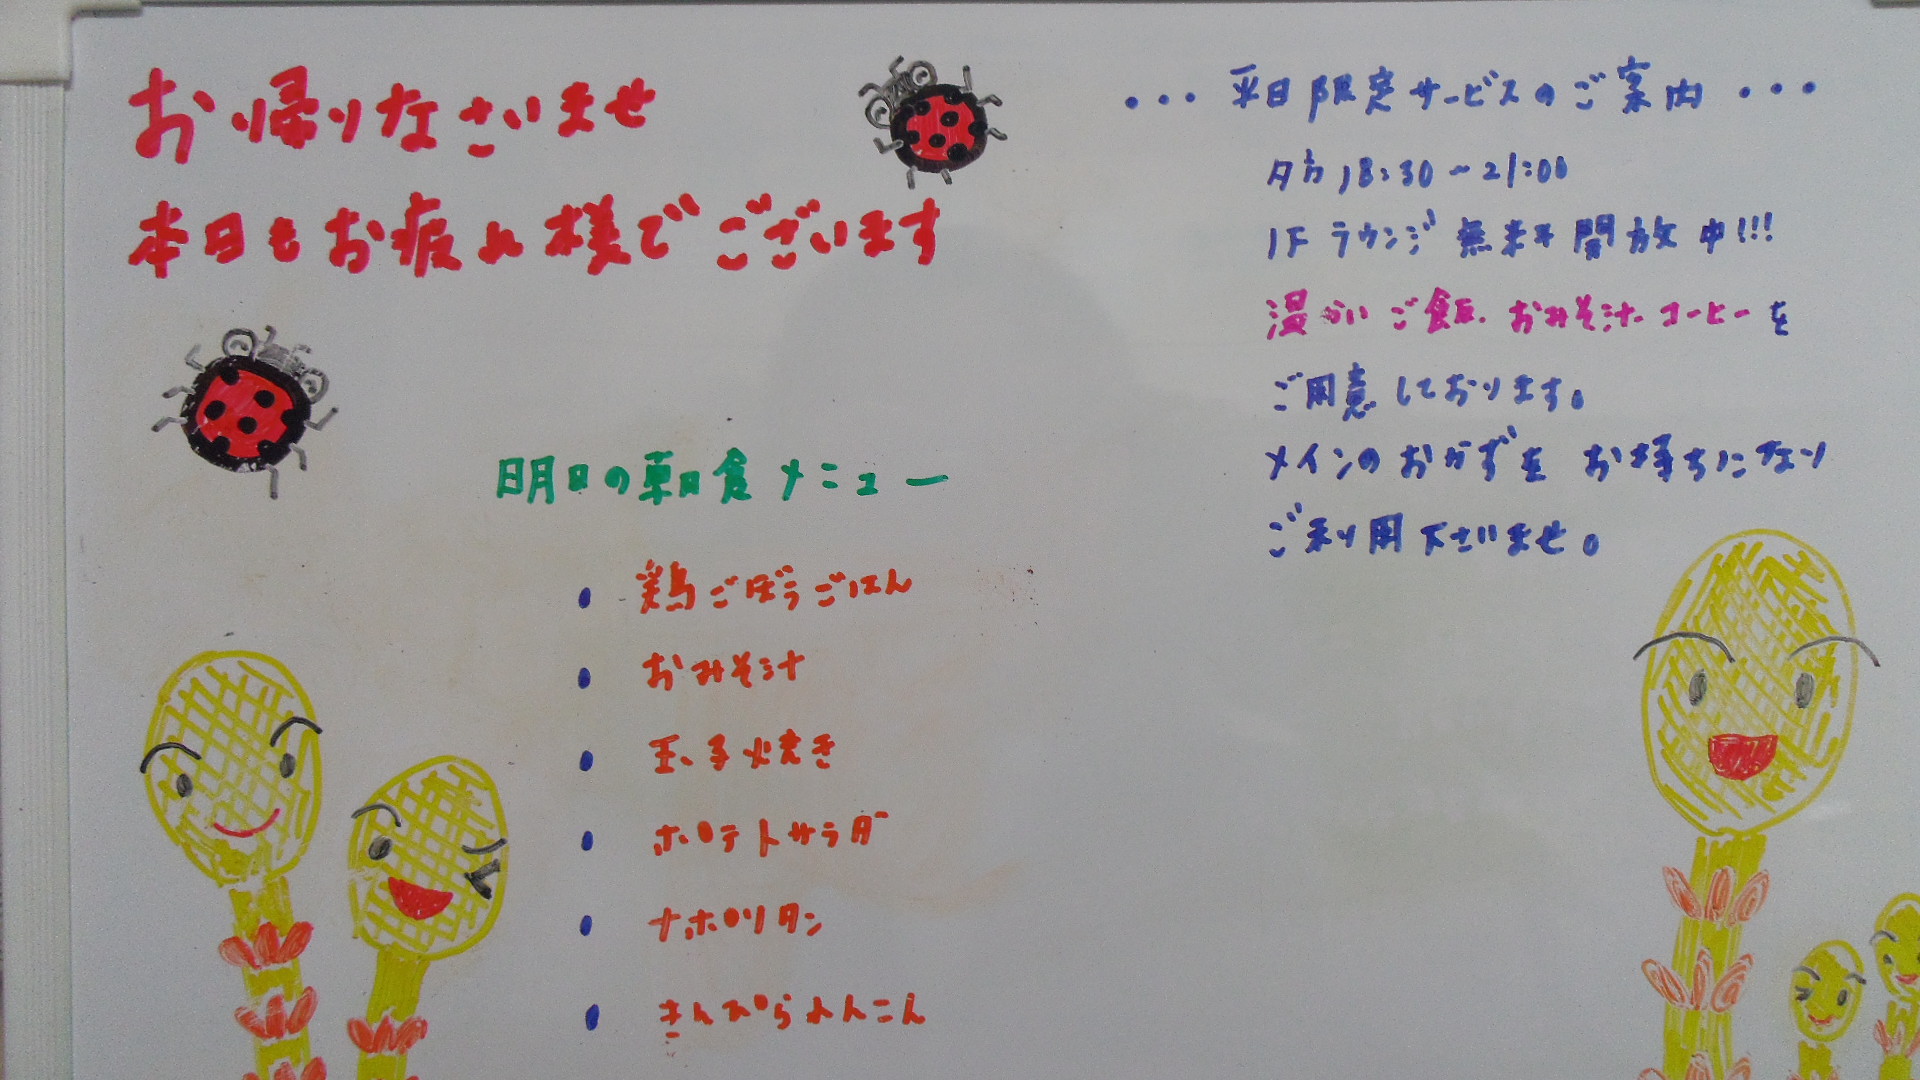 お帰りなさいませ
本日もお疲れ様でございます
明日の朝食メニュー
• 鶏ごぼうごはん
• おみそ汁
• 玉子焼き
• ポテトサラダ
• ナポリタン
• きんぴられんこん
・・・平日限定サービスのご案内・・・
夕方18:30~21:00
1Fラウンジ無料開放中!!!
温かいご飯.おみそ汁.コーヒーを
ご用意しております。
メインのおかずをお持ちになり
ご利用下さいませ。